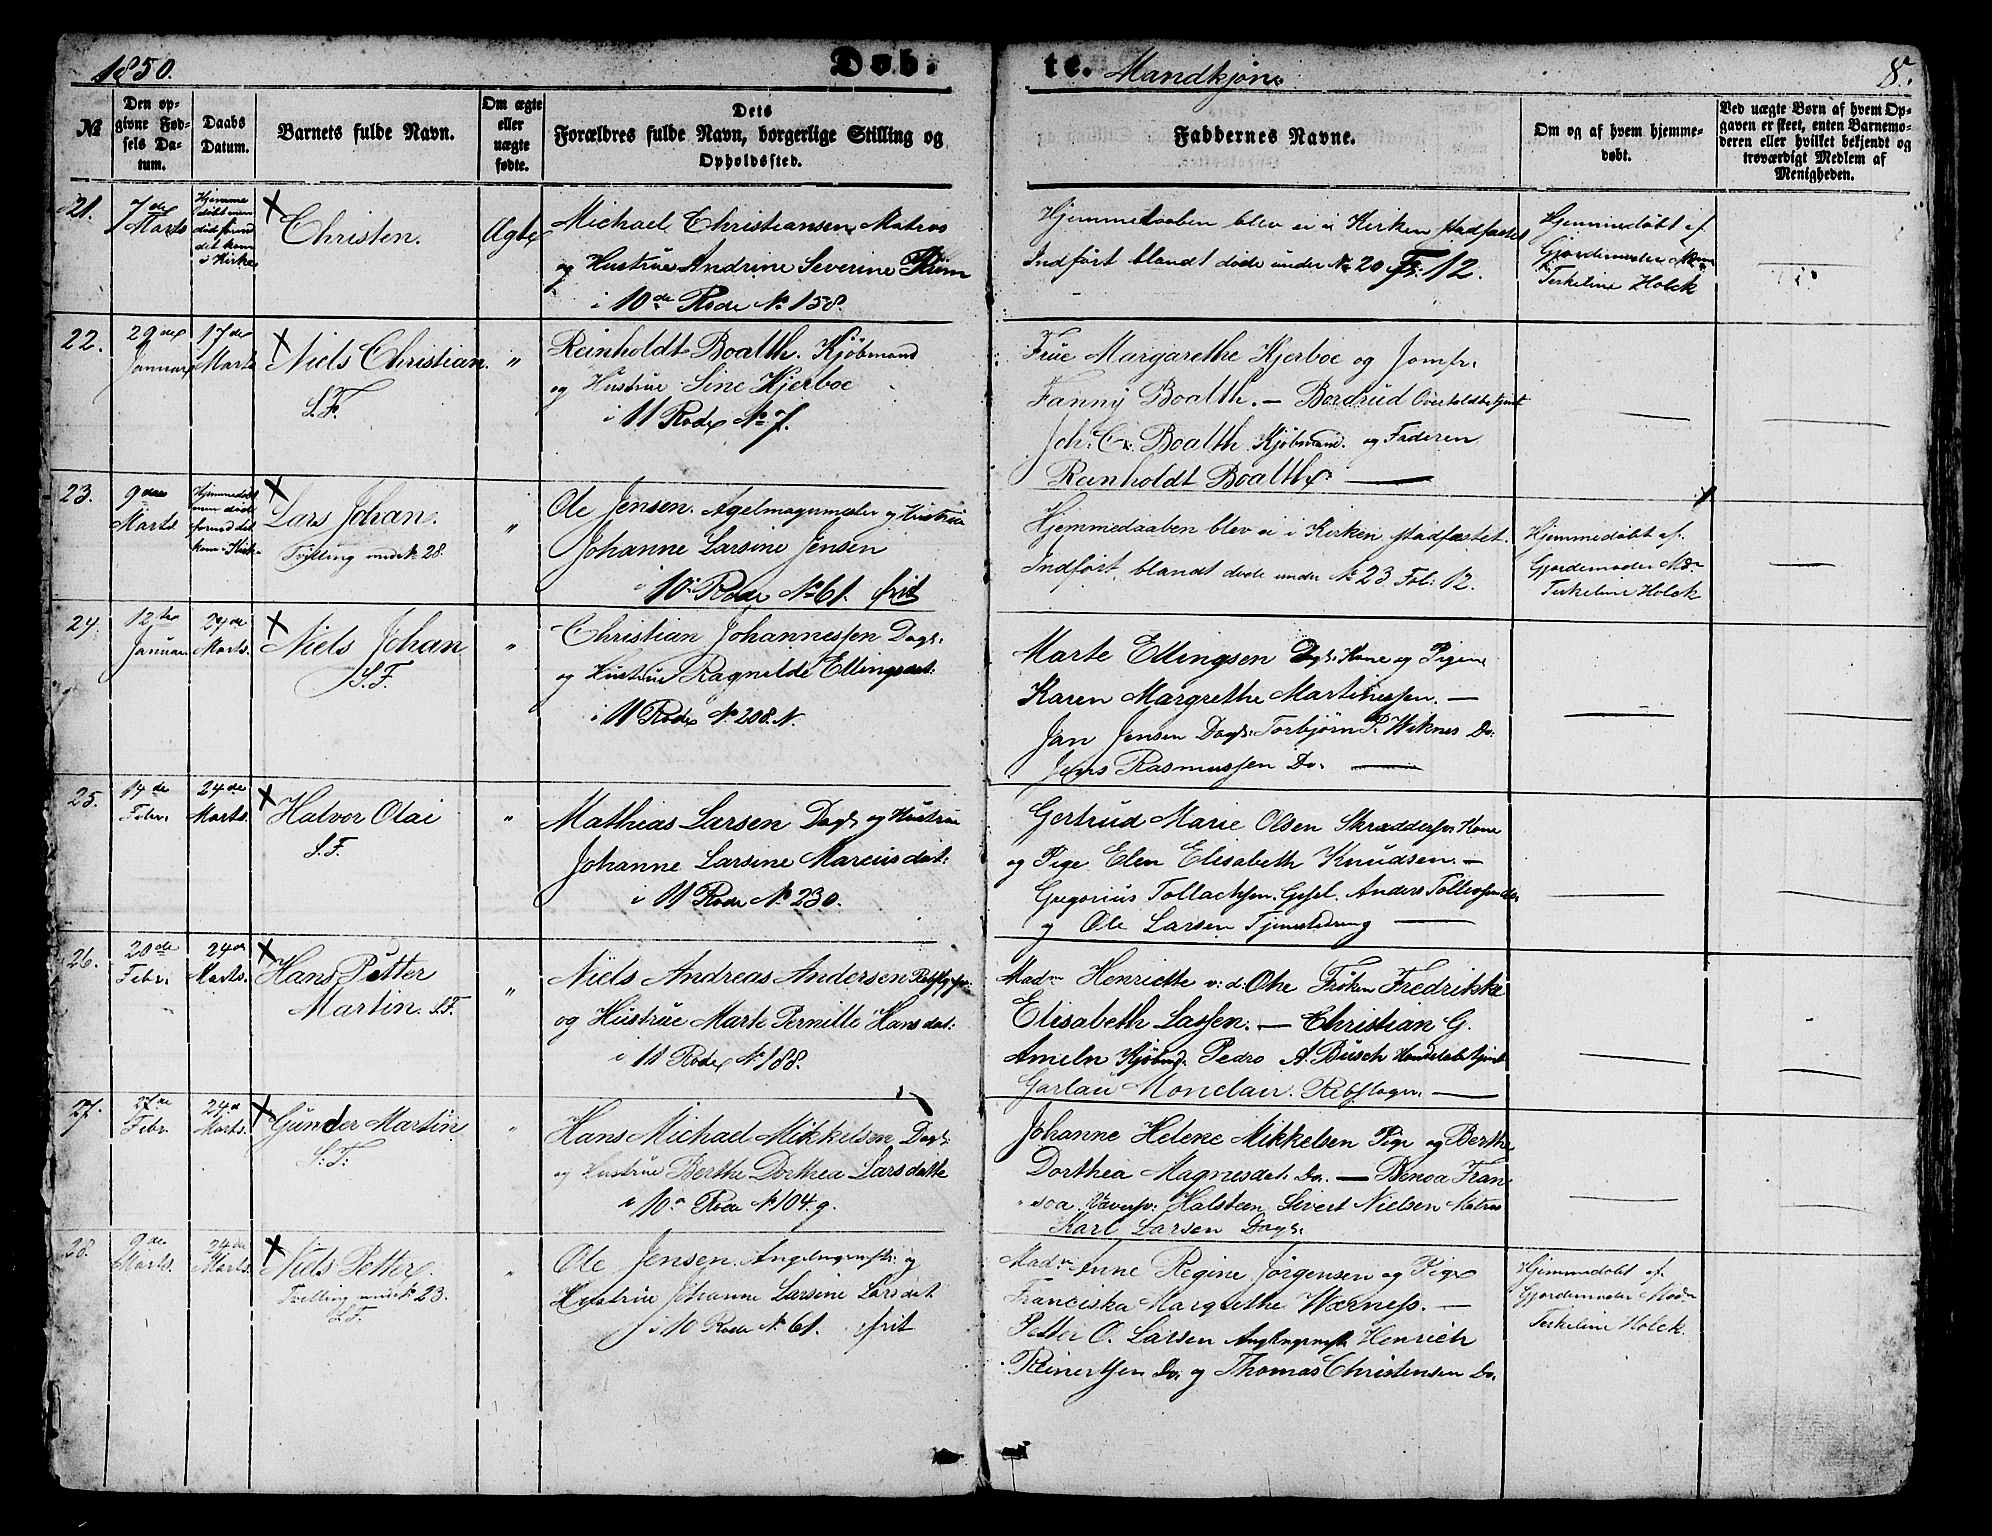 1850.
Døb-
te. Mandkjøn.
8.
No
Den op-
givne Fød-
sels Da-
tum.
Daabs
Datum.
Barnets fulde Navn.
Om ægte
eller
uægte
fødte.
Dets
Forældres fulde Navn, borgerlige Stilling og
Opholdssted.
Faddernes Navne.
Om og af hvem hjemme-
døbt.
Ved uægte Børn af hvem Op-
gaven er skeet, enten Barnemo-
deren eller hvilket bekjendt og
troværdigt Medlem af
Menigheden.
21.
7de
Marts
Hjemme
døbt men
døde forend
det kom
i Kirke
Christen.
Ægte
Michael Christiansen Matros
og Hustrue Andrine Severine
i 10de Rode No 158.
Hjemmedaaben blev ei i Kirken stadfæstet
Indført blandt døde under No 20 Fol: 12.
Hjemmedøbt af
Gjordemoder
Terkeline Holck
22.
29de
Januar
17de
Marts
Niels Christian.
S.F.
"
Reinholdt Boalth. Kjøbmand
og Hustrue Sine Kjerboe
i 11 Rode No 7.
Frue Margarethe Kjerboe og Jomfr.
Fanny Boalth. — Bordrud
Joh: C. Boalth. Kjøbmand. og Faderen
Reinholdt Boalth. —
23.
9de
Marts
Hjemmedøbt
men døde
forend det
kom i Kirke
Lars Johan.
Tvilling med No 28.
"
Ole Jensen. og Hustrue
Johanne Larsine Jensen
i 10 Rode No 61. frit
Hjemmedaaben blev ei i Kirken stadfæstet.
Indført blandt døde under No 23 Fol: 12.
Hjemmedøbt af.
Gjordemoder
Terkeline Holck
24.
12te
Januar
24de
Marts.
Niels Johan
S.F.
"
Christian Johannessen Dags:
og Hustrue Ragnilde Ellingsdat:
i 11 Rode No 208. N.
Marte Ellingsen Dags: Kone og Pigen
Karen Margrethe Martinessen. —
Jan Jensen Dags: Torbjørn P. Weknes Do.
Jens Rasmussen Do. —
25.
14de
Febr.
24de
Marts.
Halvor Olai
S.F.
"
Mathias Larsen Dags: og Hustrue
Johanne Larsine Marcusdat:
i 11 Rode No 230.
Gertrud Marie Olsen Skrædders Kone
og Pige Elen Elisabeth Knudsen. —
Gregorius Tollachsen. Gesel. Anders Tollevsen do.
og Ole Larsen Tjenestedreng —
26.
20de
Febr.
24de
Marts.
Hans Petter
Martin. S.F.
"
Niels Andreas Andersen
og Hustrue Marte Pernille Hansdat:
i 11 Rode No 188.
Madm Henriette v: d: Ohe Frøken Fredrikke
Elisabeth Lassen. — Christian G.
Ameln Kjøbmd. Pedro A. Busch
Garlau Monclair. Rebslager. —
27.
27de
Febr.
24de
Marts.
Gunder Martin
S:F:
"
Hans Michael Mikkelsen Dags:
og Hustrue Berthe Dorthea Larsdatte
i 10 Rode No 104. g.
Johanne Helene Mikkelsen Pige og Berthe
Dorthea Magnesdat: Do. — Benoa Fran
Halsteen Sivert Nielsen Matros
Karl Larsen Dags:
28.
9de
Marts.
24de
Marts.
Niels Petter.
Tvilling med No 23.
S.F.
"
Ole Jensen. og
Hustrue Johanne Larsine Larsdat
i 10 Rode No 61. frit
Madm Anne Regine Jørgensen og Pige
Franciska Margrethe Wærness. —
Petter O. Larsen Henrich
Reinertsen Do. og Thomas Christensen Do.
Hjemmedøbt af.
Gjordemoder
Terkeline Holck.